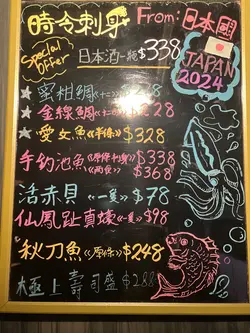 時令刺身 From: 日本
Special Offer
日本酒一瓶 $338
JAPAN 2024
☆蜜柑鯛
☆金線鯛
☆愛女魚 《半條》 $328
手釣池魚 《原條刺身》 $338
$368
活赤貝 《一隻》 $78
仙鳳趾真蠔 《一隻》 $98
秋刀魚 《原條》 $248
極上壽司盛 $288